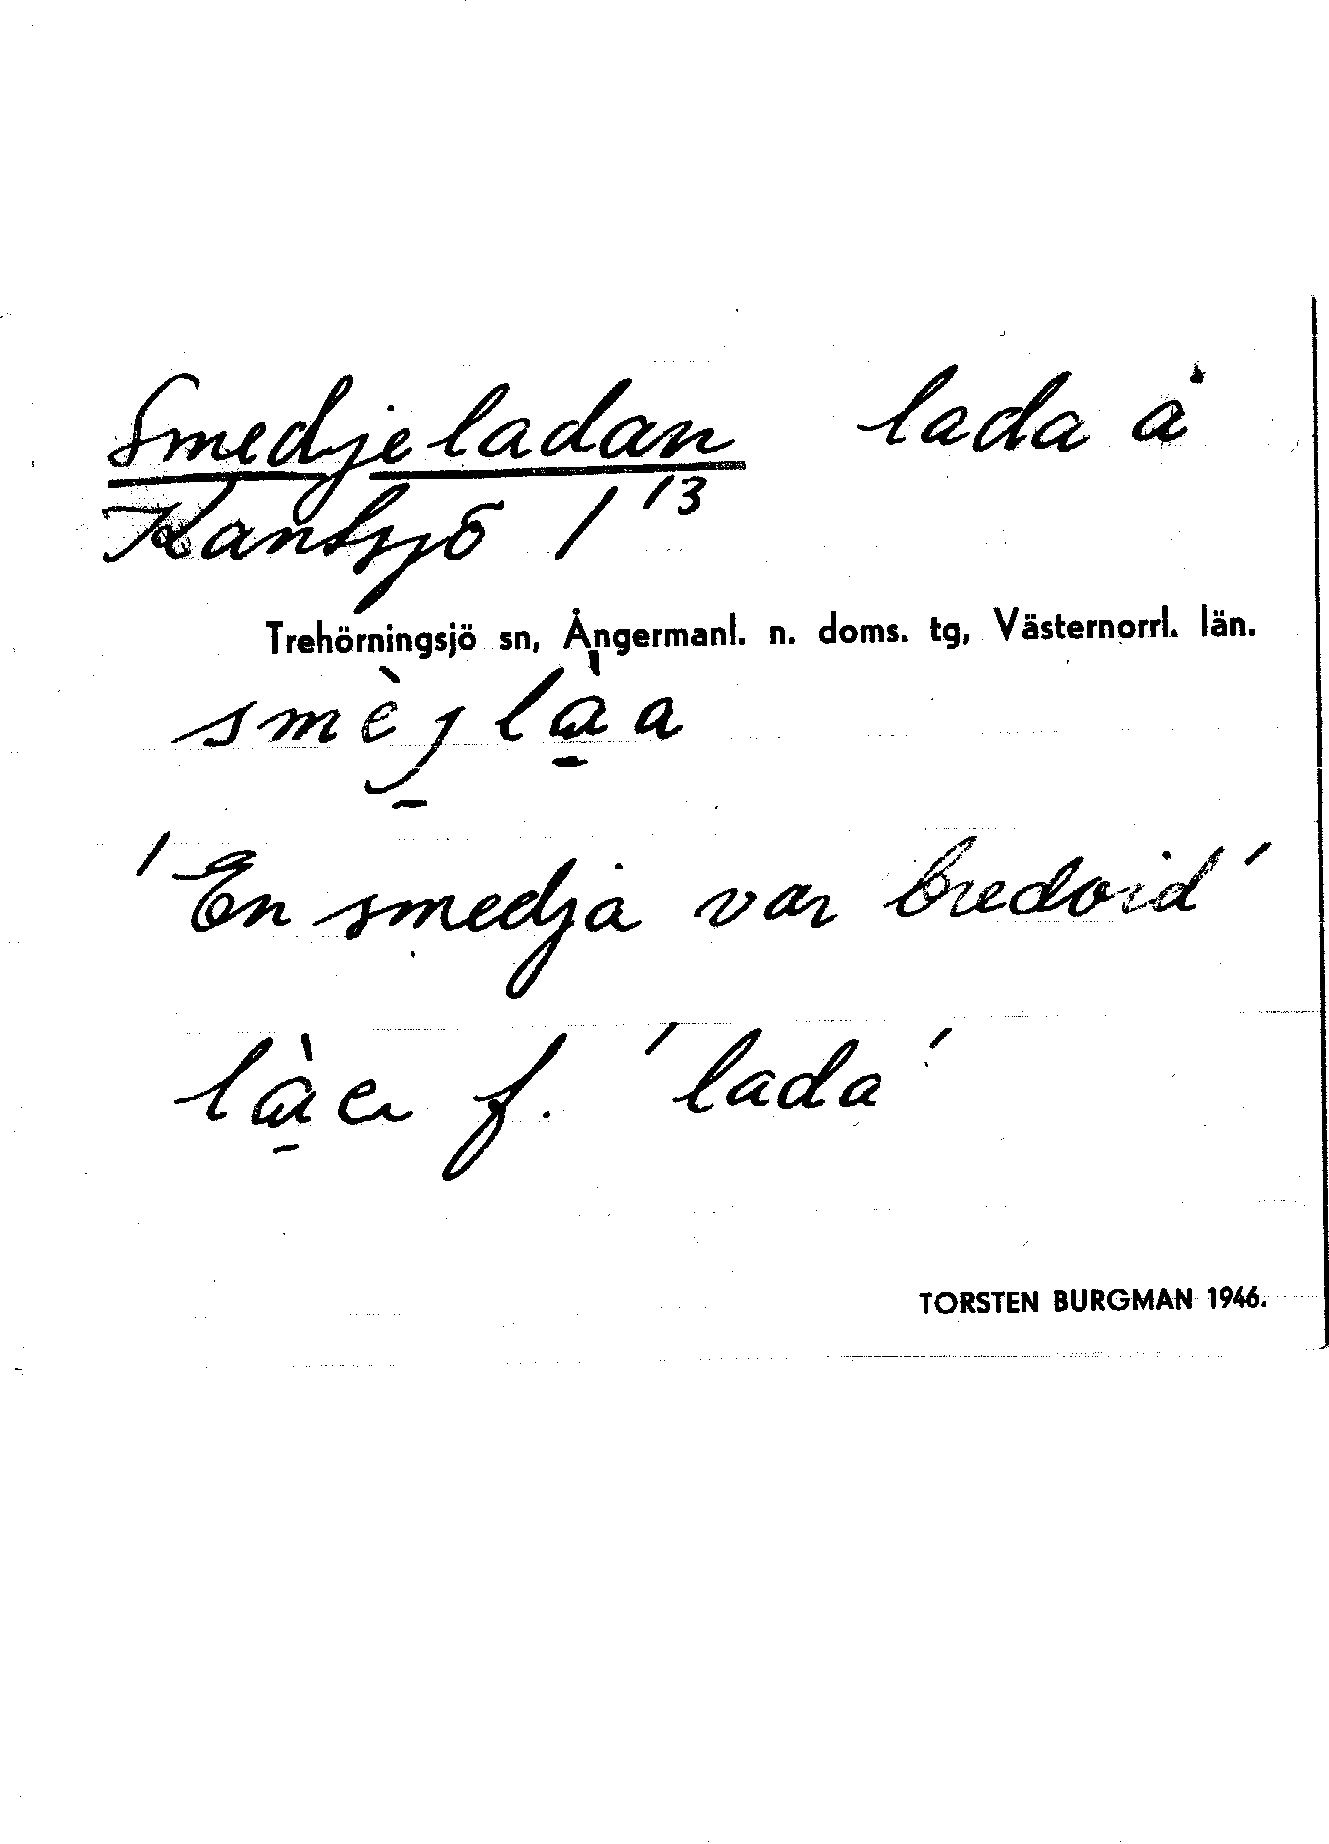 Smedjeladan lada å
Kantsjö 1 13
Trehörningsjö sn, Ångermanl. n. doms. tg, Västernorrl. län.
smèj làa
'En smedja var bredvid'
làa f. 'lada'
TORSTEN BURGMAN 1946.